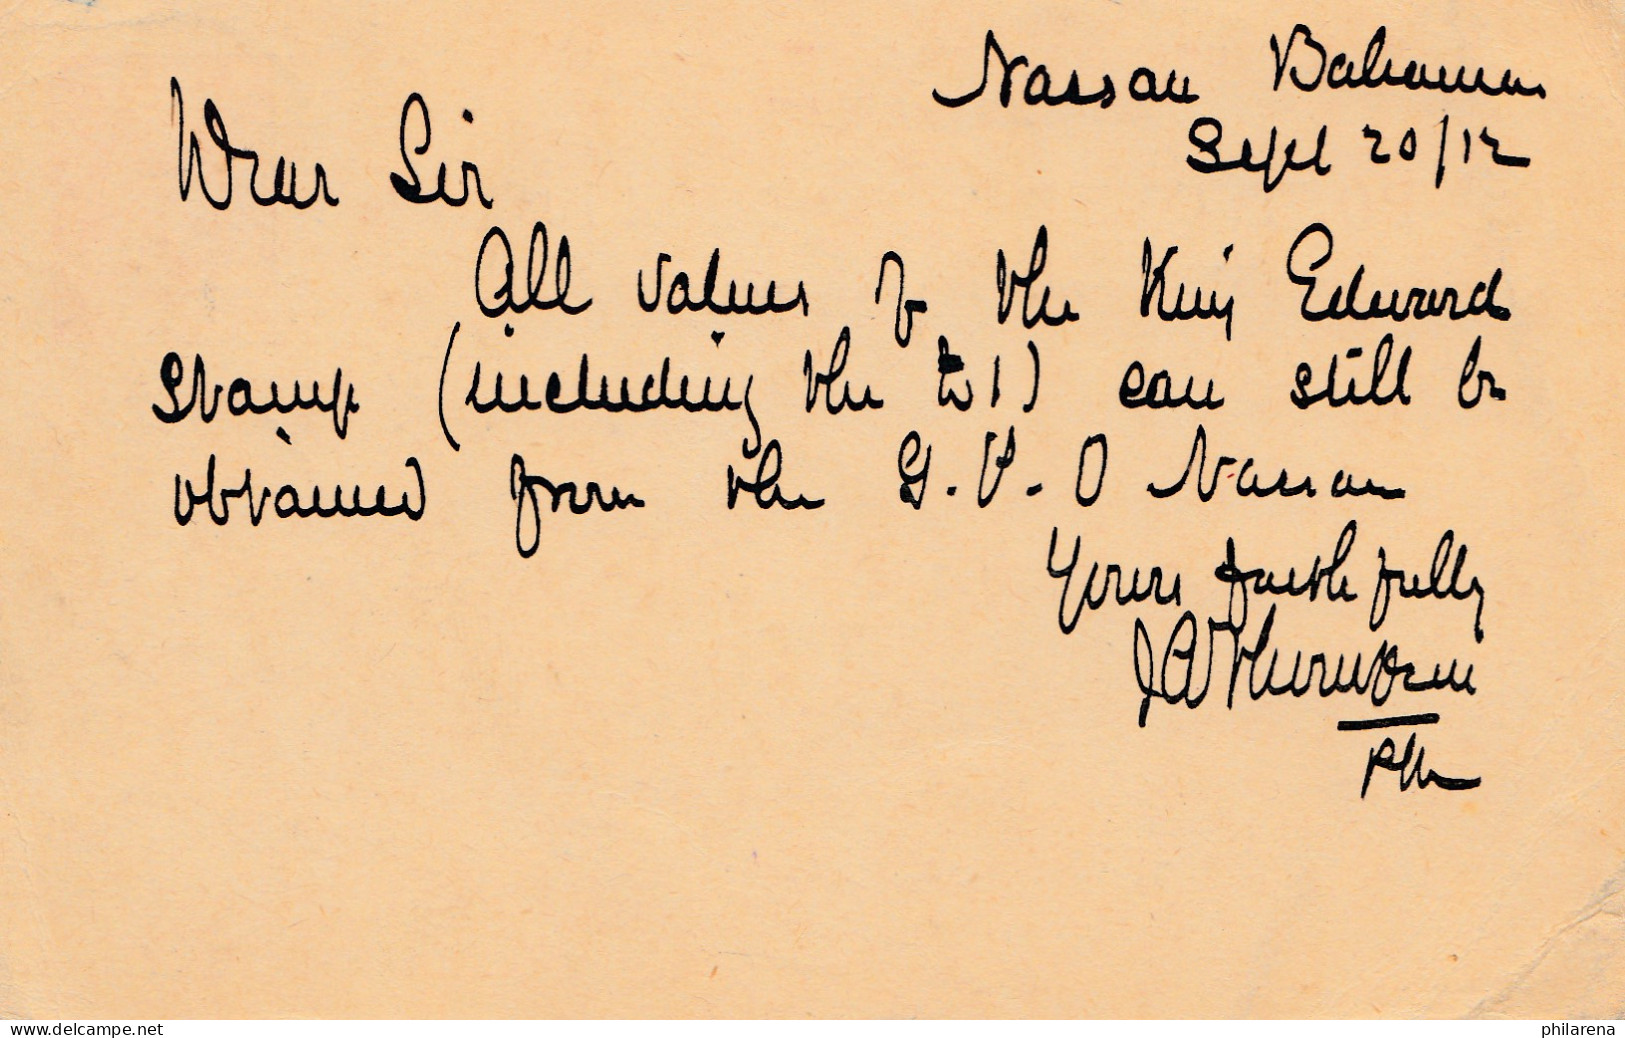 Nassau Bahamas
Sept 20/12
Dear Sir
All values of the King Edward
Stamp (including the 1) can still be
obtained from the G.P.O Nassau
Yours faithfully
PM
www.delcampe.net
philarena